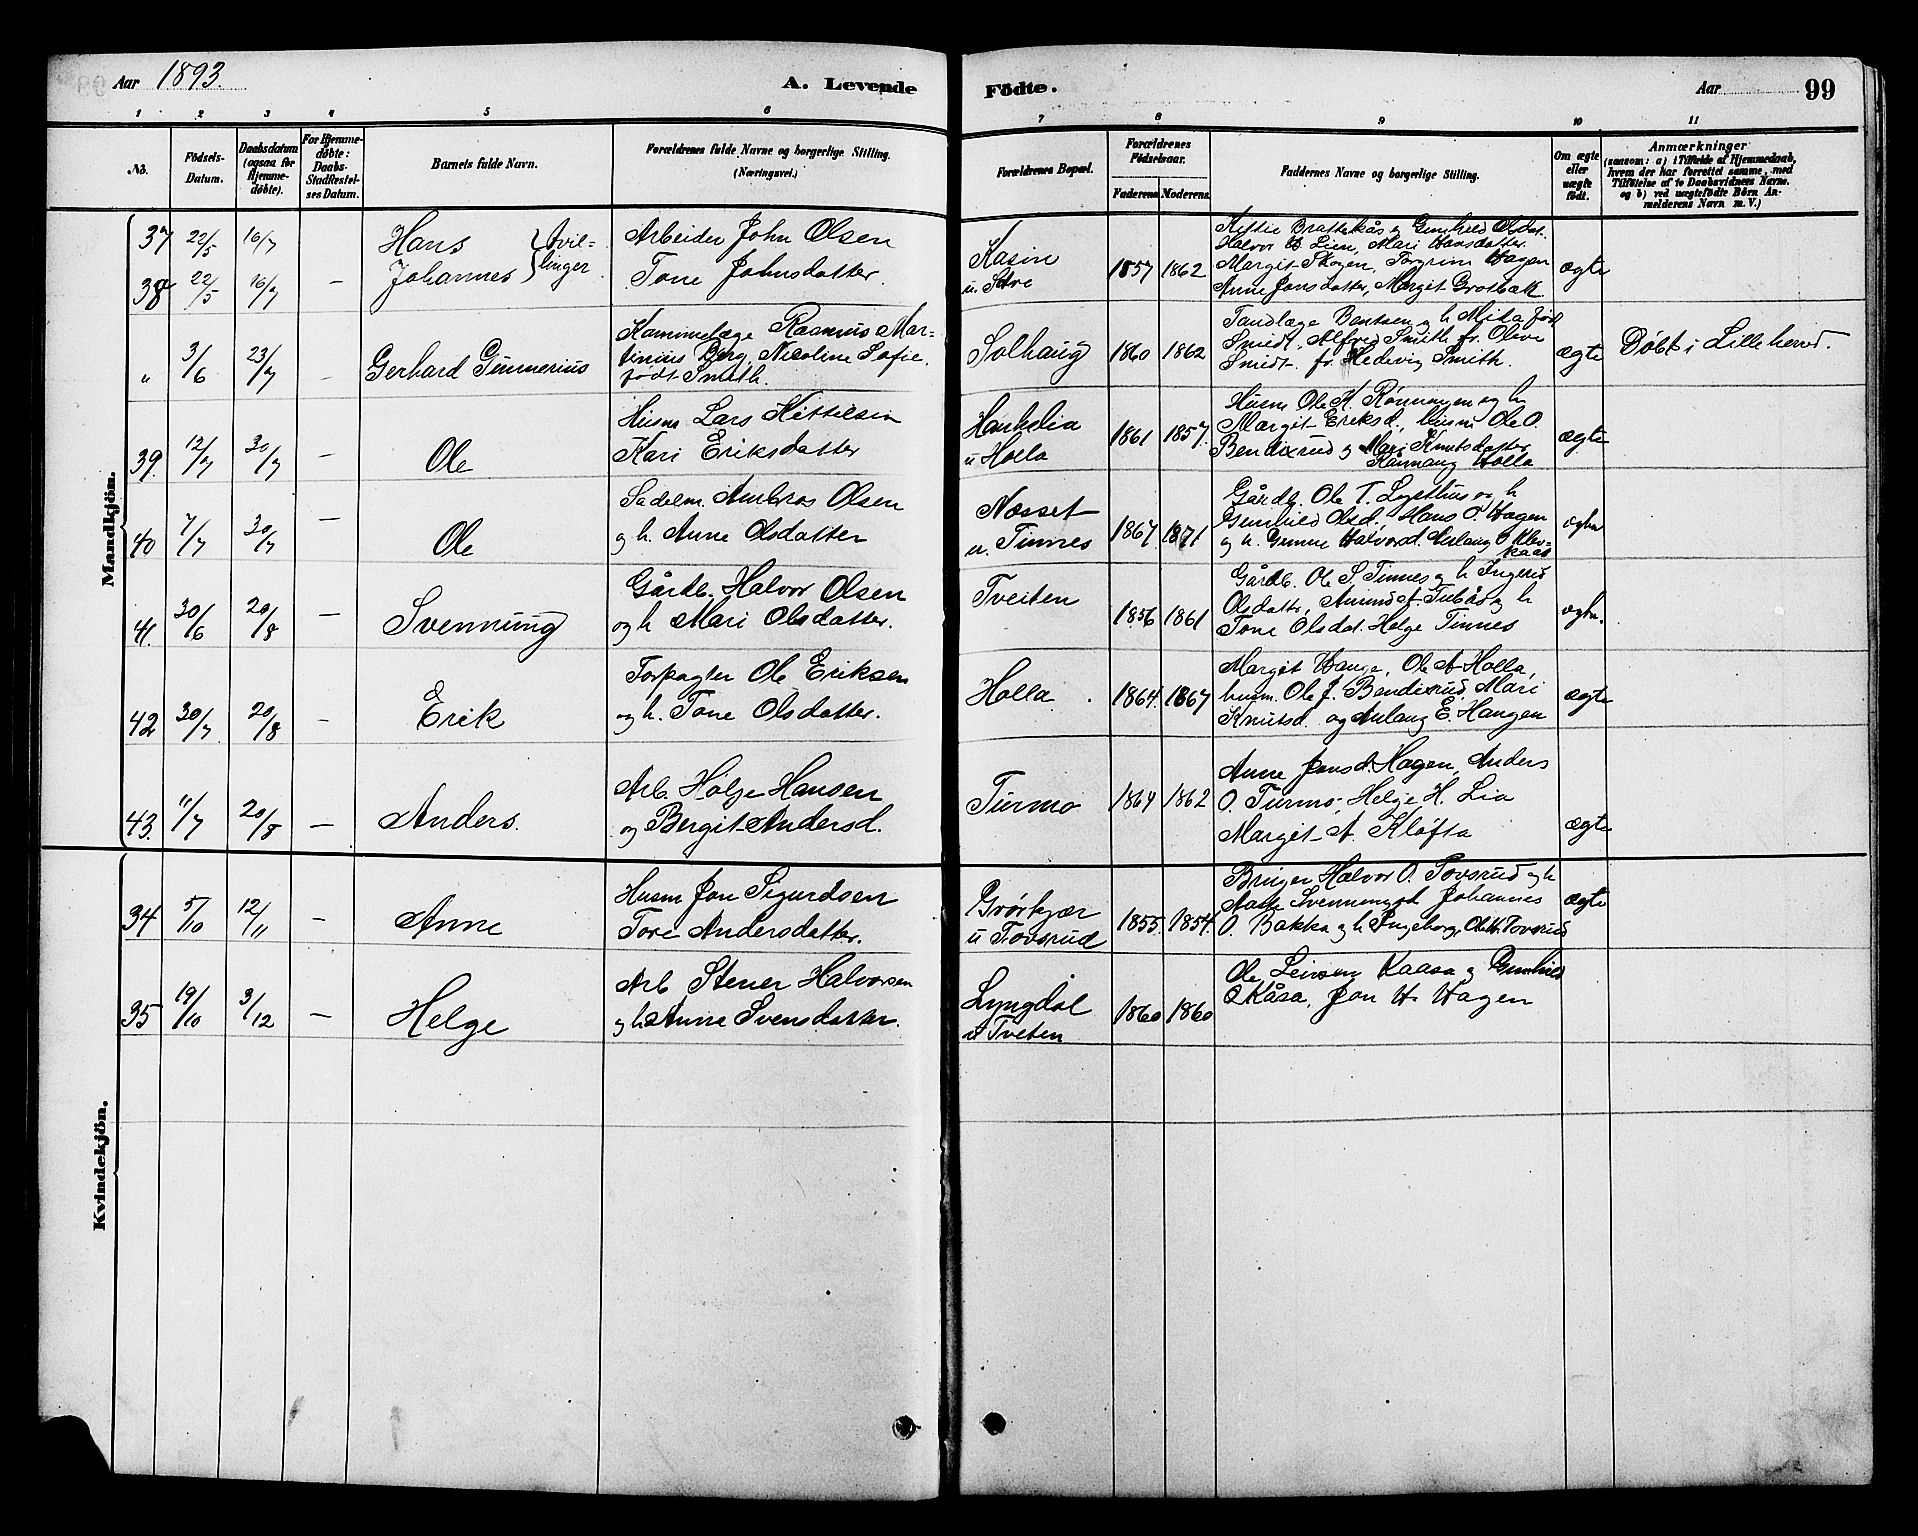 Aar 1893.
A. Levende Födte.
Aar 99
1 2 3 4 5 6 7 8 9 10 11
No.
Födsels-Datum.
Daabsdatum (ogsaa for Hjemme-döbte).
For Hjemme-döbte: Daabs-Stadfæstel-ses Datum.
Barnets fulde Navn.
Forældrenes fulde Navne og borgerlige Stilling.
(Næringsvei.)
Forældrenes Bopæl.
Forældrenes Födselsaar.
Faderens Moderens
Faddernes Navne og borgerlige Stilling.
Om ægte eller uægte födt.
Anmærkninger
(saasom: a) i Tilfælde af Hjemmedaab,
hvem der har forrettet samme, med
Tilföielse af to Daabsvidners Navne.
og b) ved uægtefödte Börn An-
melderens Navn m. V.)
Mandkjön.
37 22/5 16/7 Hans Tvil-
38 22/5 16/7 – Johannes linger
Arbeider John Olsen
Tone Johnsdatter
Kasin
u. Stve
1857 1862
Kittie Brattekås og Gunhild Olsdat.
Halvor H Lien, Mari Hansdatter
Margit Skogen, Torgrim Hagen
Anne Jonsdatter, Margit Grotbæk
ægte
" 3/6 23/7 – Gerhard Gunnerius
Rasmus Mar-
tinius Berg, Nicoline Sofie
födt Smith.
Solhaug
1860 1862
Tandlæge Bentsen og h. Mila föd
Smidt. Alfred Smith fr. Olive
Smidt. fr. Hedevig Smith.
ægte
Döbt i Lilleherred.
39. 12/7 30/7 – Ole
Husm Lars Kittilsen
Kari Eriksdatter
Haukelia
u Holla
1861 1857.
Husm Ole K. Rönningen og h
Margit Eriksd., husm Ole O.
Bendixrud og Mari Knutsdatter
Rannaug Holla
ægte
40 7/7 30/7 – Ole
Sadelm. Ambros Olsen
og h. Anne Olsdatter
Næsset
u. Tinnes
1867 1871
Gårdb. Ole T. Lysthus og h
Gunhild Olsd., Hans O. Hagen
og h. Gunne Halvorsd. Aslaug O Klev-
kaas
ægte
41. 30/6 20/8 – Svennung
Gårdb. Halvor Olsen
og h Mari Olsdatter.
Tveiten
1856 1861
Gårdb. Ole S. Tinnes og h Ingerid
Olsdatter, Amund A. Tubås og h
Tone Olsdat. Helge Tinnes
ægte.
42 30/7 20/8 – Erik
Forpagter Ole Eriksen
og h. Tone Olsdatter.
Holla .
1864. 1867
Margit Hauge, Ole A Holla,
husm. Ole J. Bendixrud, Mari
Knutsd. og Aslaug E. Haugen
ægte
43. 11/7 20/8 – Anders.
Arb. Holje Hansen
og Bergit Andersd.
Turmo
1864 1862
Anne Jonsd. Hagen, Anders
O. Turmo, Helge H. Lia
Margit A. Kløfta
ægte
Kvindekjön.
34 5/10 12/11 – Anne
Husm Jon Sigurdsen
Tore Andersdatter.
Grörkjær
u Tovsrud
1855. 1854.
Bruger Halvor O. Tovsrud og h
Aaste Svennungsd Johannes
O. Bakka og h Ingeborg, Ole H. Tovsrud
ægte
35 19/10 3/12 – Helge
Arb Stener Halvorsen
og h. Anne Svensdatter.
Lyngdal
u Tveten
1860 1860
Ole Leivsen Kaasa og Gunhild
O Kåsa, Jon H. Hagen